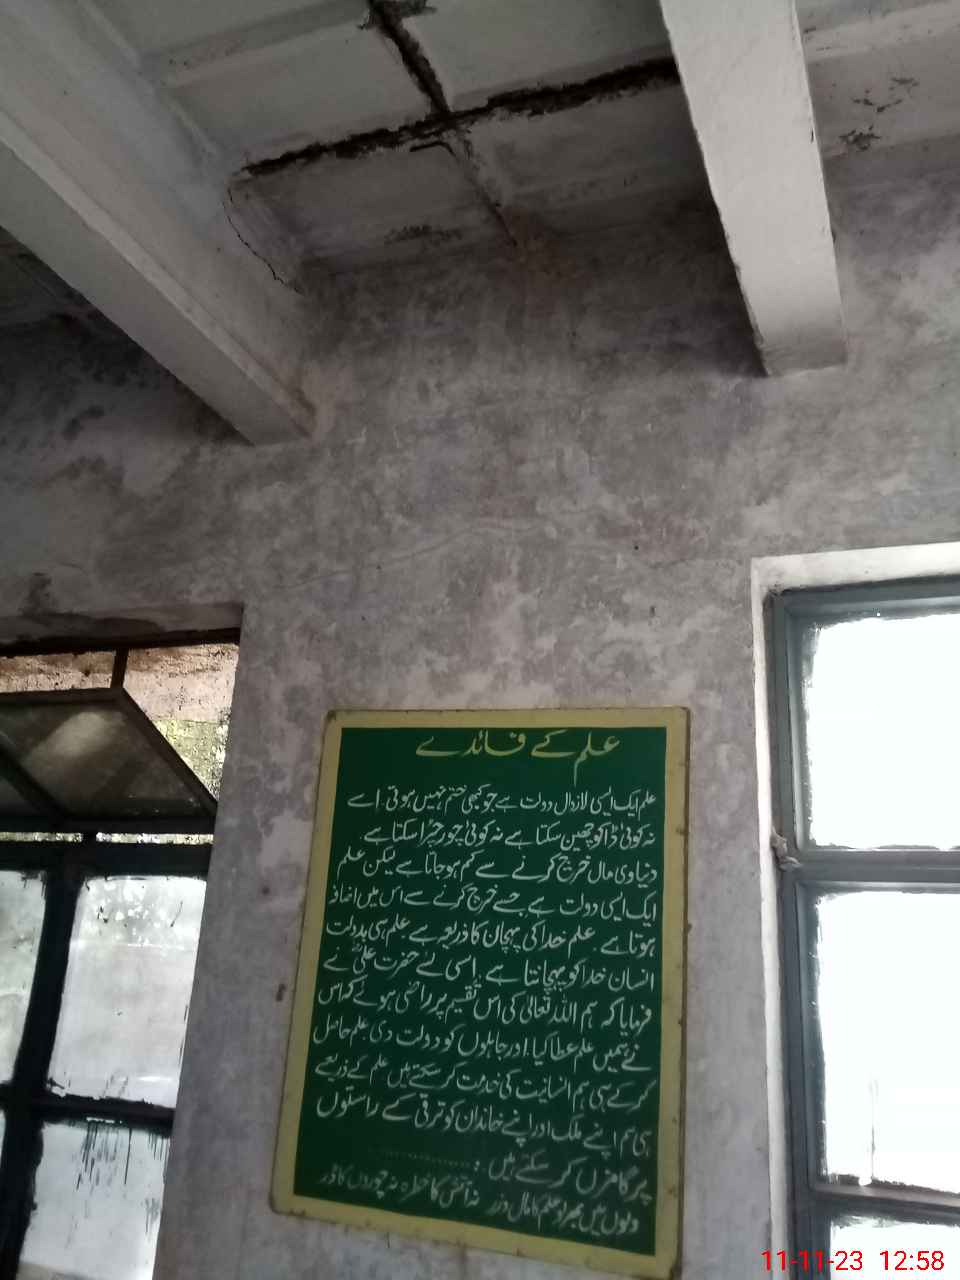 علم کے فائدے
علم ایک ایسی لازوال دولت ہے جو کبھی ختم نہیں ہوتی۔ اسے
نہ کوئی ڈاکو چھین سکتا ہے نہ کوئی چور چرا سکتا ہے
دنیاوی مال خرچ کرنے سے کم ہو جاتا ہے لیکن علم
ایک ایسی دولت ہے جسے خرچ کرنے سے اس میں اضافہ
ہوتا ہے۔ علم خدا کی پہچان کا ذریعہ ہے علم ہی بدولت
انسان خدا کو پہچانتا ہے۔ اسی لئے حضرت علیؓ نے
فرمایا کہ ہم اللہ تعالیٰ کی اس تقسیم پر راضی ہوئے کہ اس
نے ہمیں علم عطا کیا اور جاہلوں کو دولت دی۔ علم حاصل
کر کے ہی ہم انسانیت کی خدمت کر سکتے ہیں علم کے ذریعے
ہی ہم اپنے ملک اور اپنے خاندان کو ترقی کے راستوں
پر گامزن کر سکتے ہیں :
دلوں میں بھر لو علم کا مال و زر نہ آتش کا خطرہ نہ چوروں کا ڈر
11-11-23 12:58